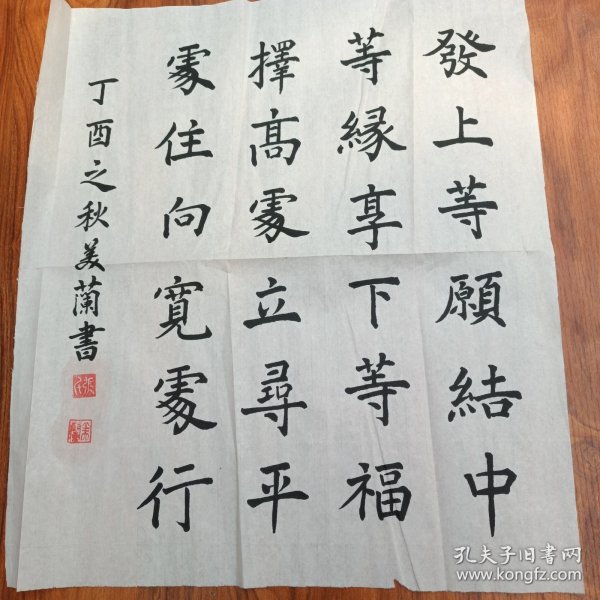 發上等願結中
等緣享下等福
擇高處立尋平
處住向寬處行
丁酉之秋美蘭書
孔夫子旧書网
www.kongfz.com